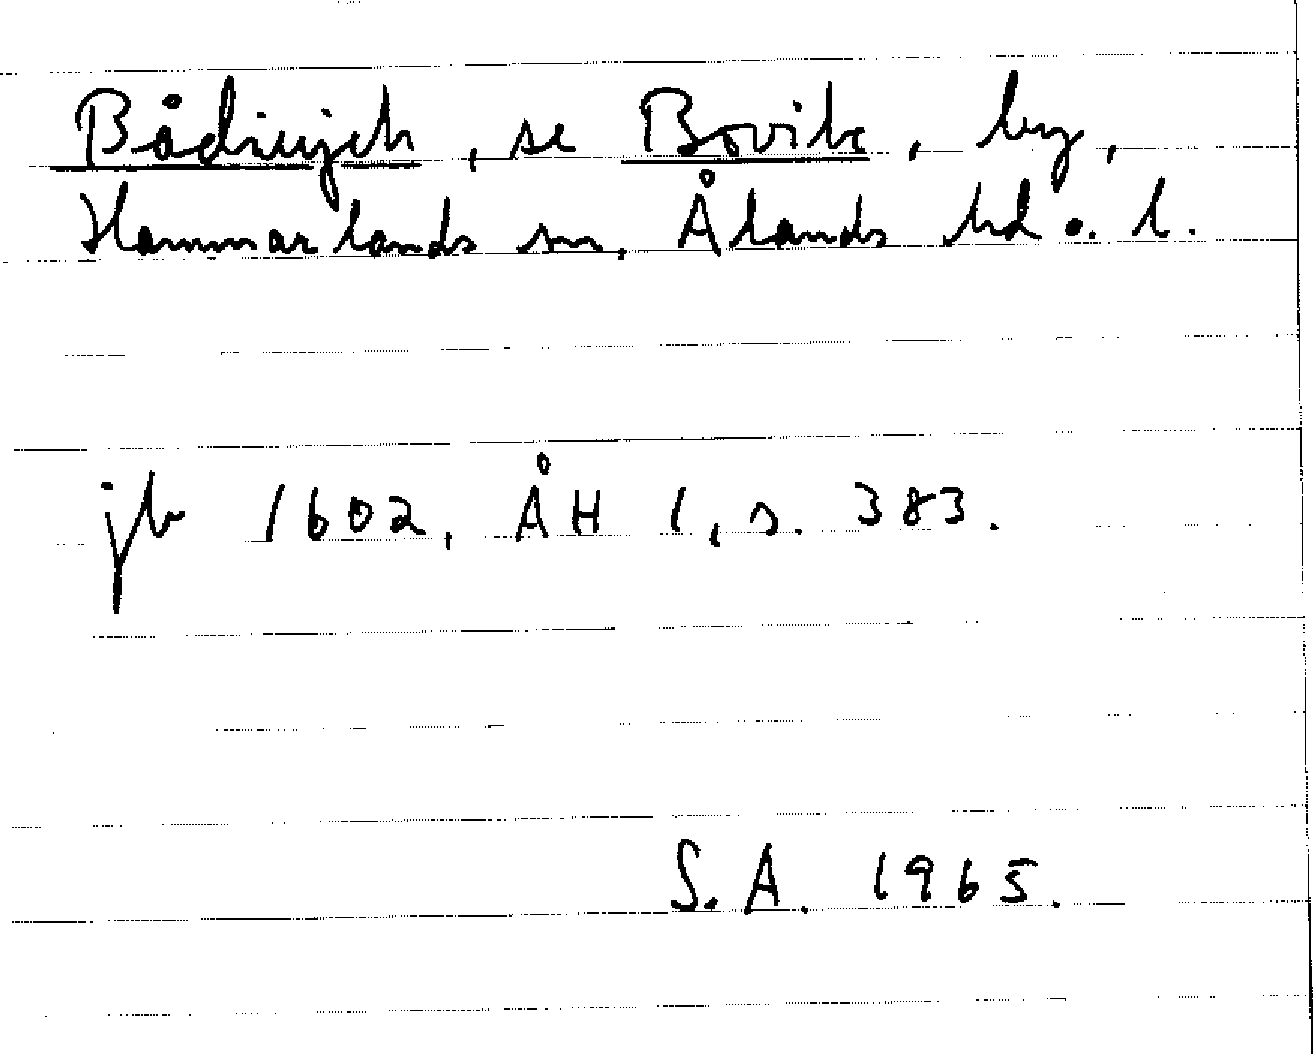 , se Bovik, by,
Hammarlands sn, Ålands hd o. l.
jb 1602, ÅH 1, s. 383.
S. A. 1965.